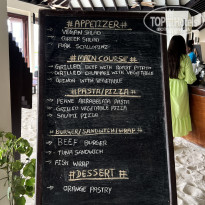 #APPETIZER
VEGAN SALAD
GREEK SALAD
PORK SCALLOPINI
#MAIN COURSE
GRILLED BEEF WITH ROAST POTATO
GRILLED CALAMARI WITH VEGETABLE
WITH VEGETABLE
#PASTA/PIZZA
PENNE ARRABBIATA PASTA
GRILLED VEGETABLE PIZZA
SALAMI PIZZA
#BURGER/SANDWICH/WRAP
BEEF BURGER
TUNA SANDWICH
FISH WRAP
#DESSERT
ORANGE PASTRY